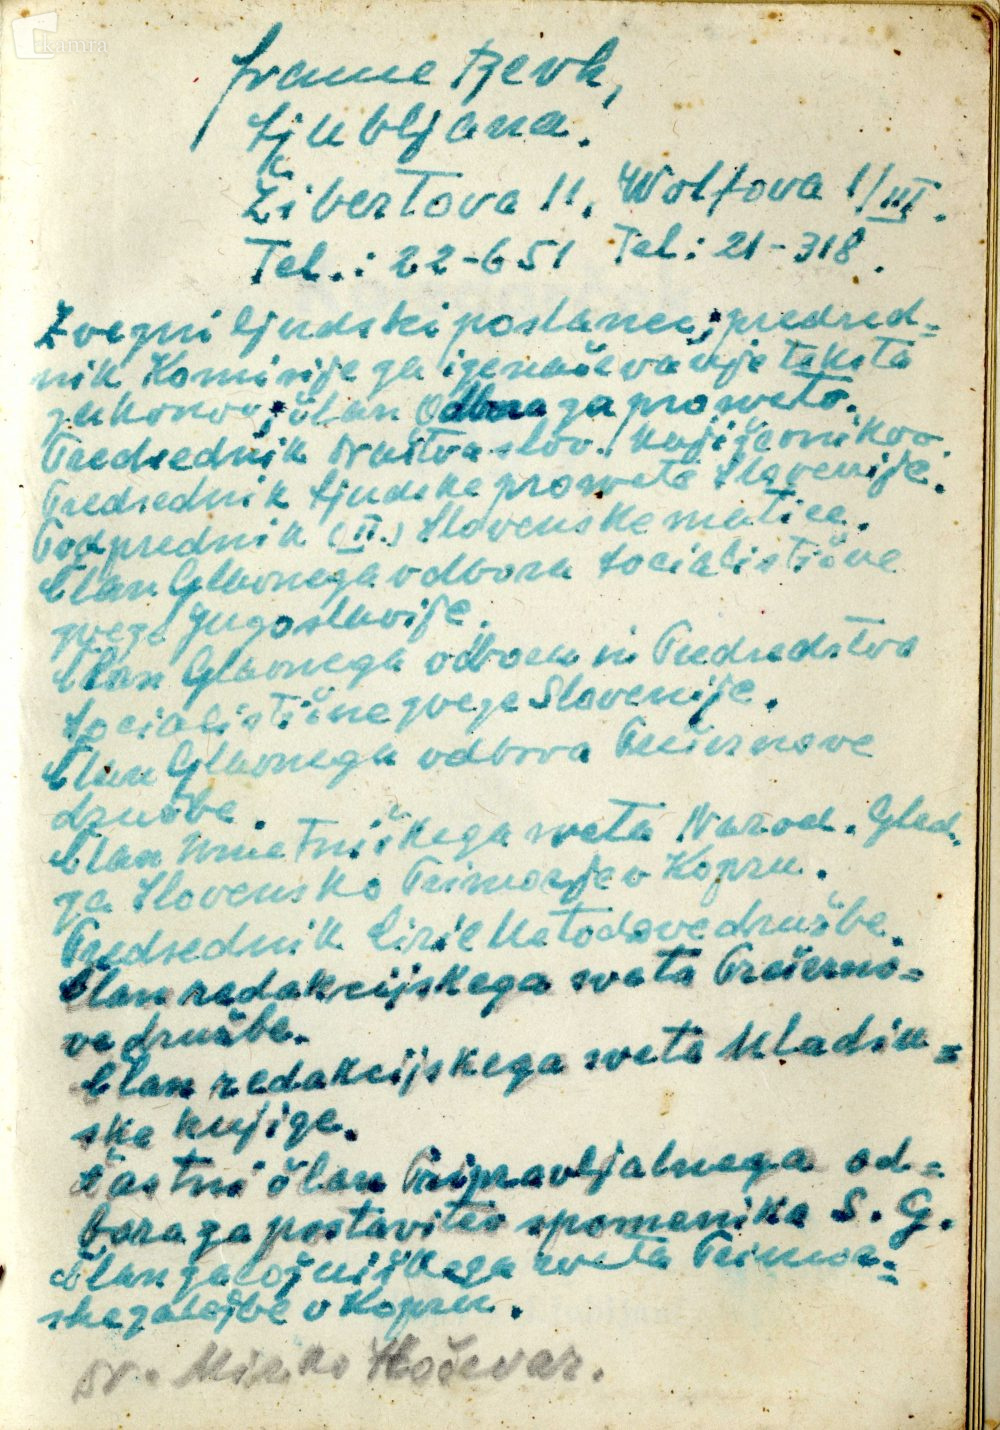 kamra
France Bevk,
Ljubljana.
Žibertova 11, Wolfova 1/III.
Tel.: 22-651 Tel: 21-318.
Zvezni ljudski poslanec, predsed=
nik Komisije za izenačevanje teksta
zakonov, član Odbora za prosveto.
Predsednik Društva slov. književnikov.
Predsednik Ljudske prosvete Slovenije.
Podprednik (II.) Slovenske matice.
Član Glavnega odbora Socialistične
zveze Jugoslavije.
Član Glavnega odbora in Predsedstva
Socialistične zveze Slovenije.
Član Glavnega odbora Prešernove
družbe.
Član Umetniškega sveta Narod. Gled.
za Slovensko Primorje v Kopru.
Predsednik Ciril Metodove družbe.
Član redakcijskega sveta Prešerno=
ve družbe.
Član redakcijskega sveta Mladin=
ske knjige.
Častni član Pripravljalnega od=
bora za postavitev spomenika S. G.
Član založniškega sveta Primor=
ske založbe v Kopru.
Dr. Mirko Hočevar.